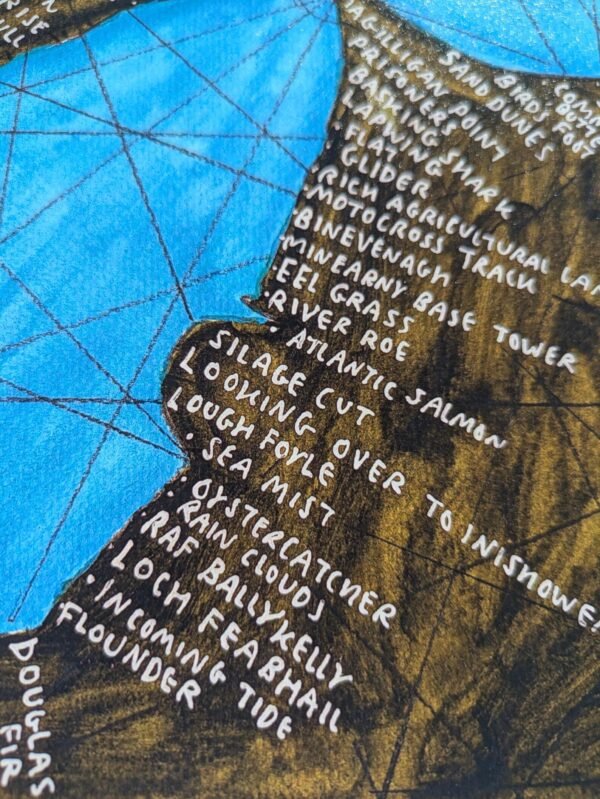 RISE
AGILLIGAN POINT
SAND DUNES
BIRDS FOOT
PRISONERS
BASKING SHARK
LAPWING
FLAT
GLIDER
RICH AGRICULTURAL LAN
MOTOCROSS TRACK
BINEVENAGH
MINEARNY BASE TOWER
EEL GRASS
RIVER ROE
ATLANTIC SALMON
SILAGE CUT
LOOKING OVER TO INISHOWE
LOUGH FOYLE
SEA MIST
OYSTERCATCHER
RAIN CLOUDS
RAF BALLYKELLY
LOCH FEABHAIL
INCOMING TIDE
FLOUNDER
DOUGLAS
FIR